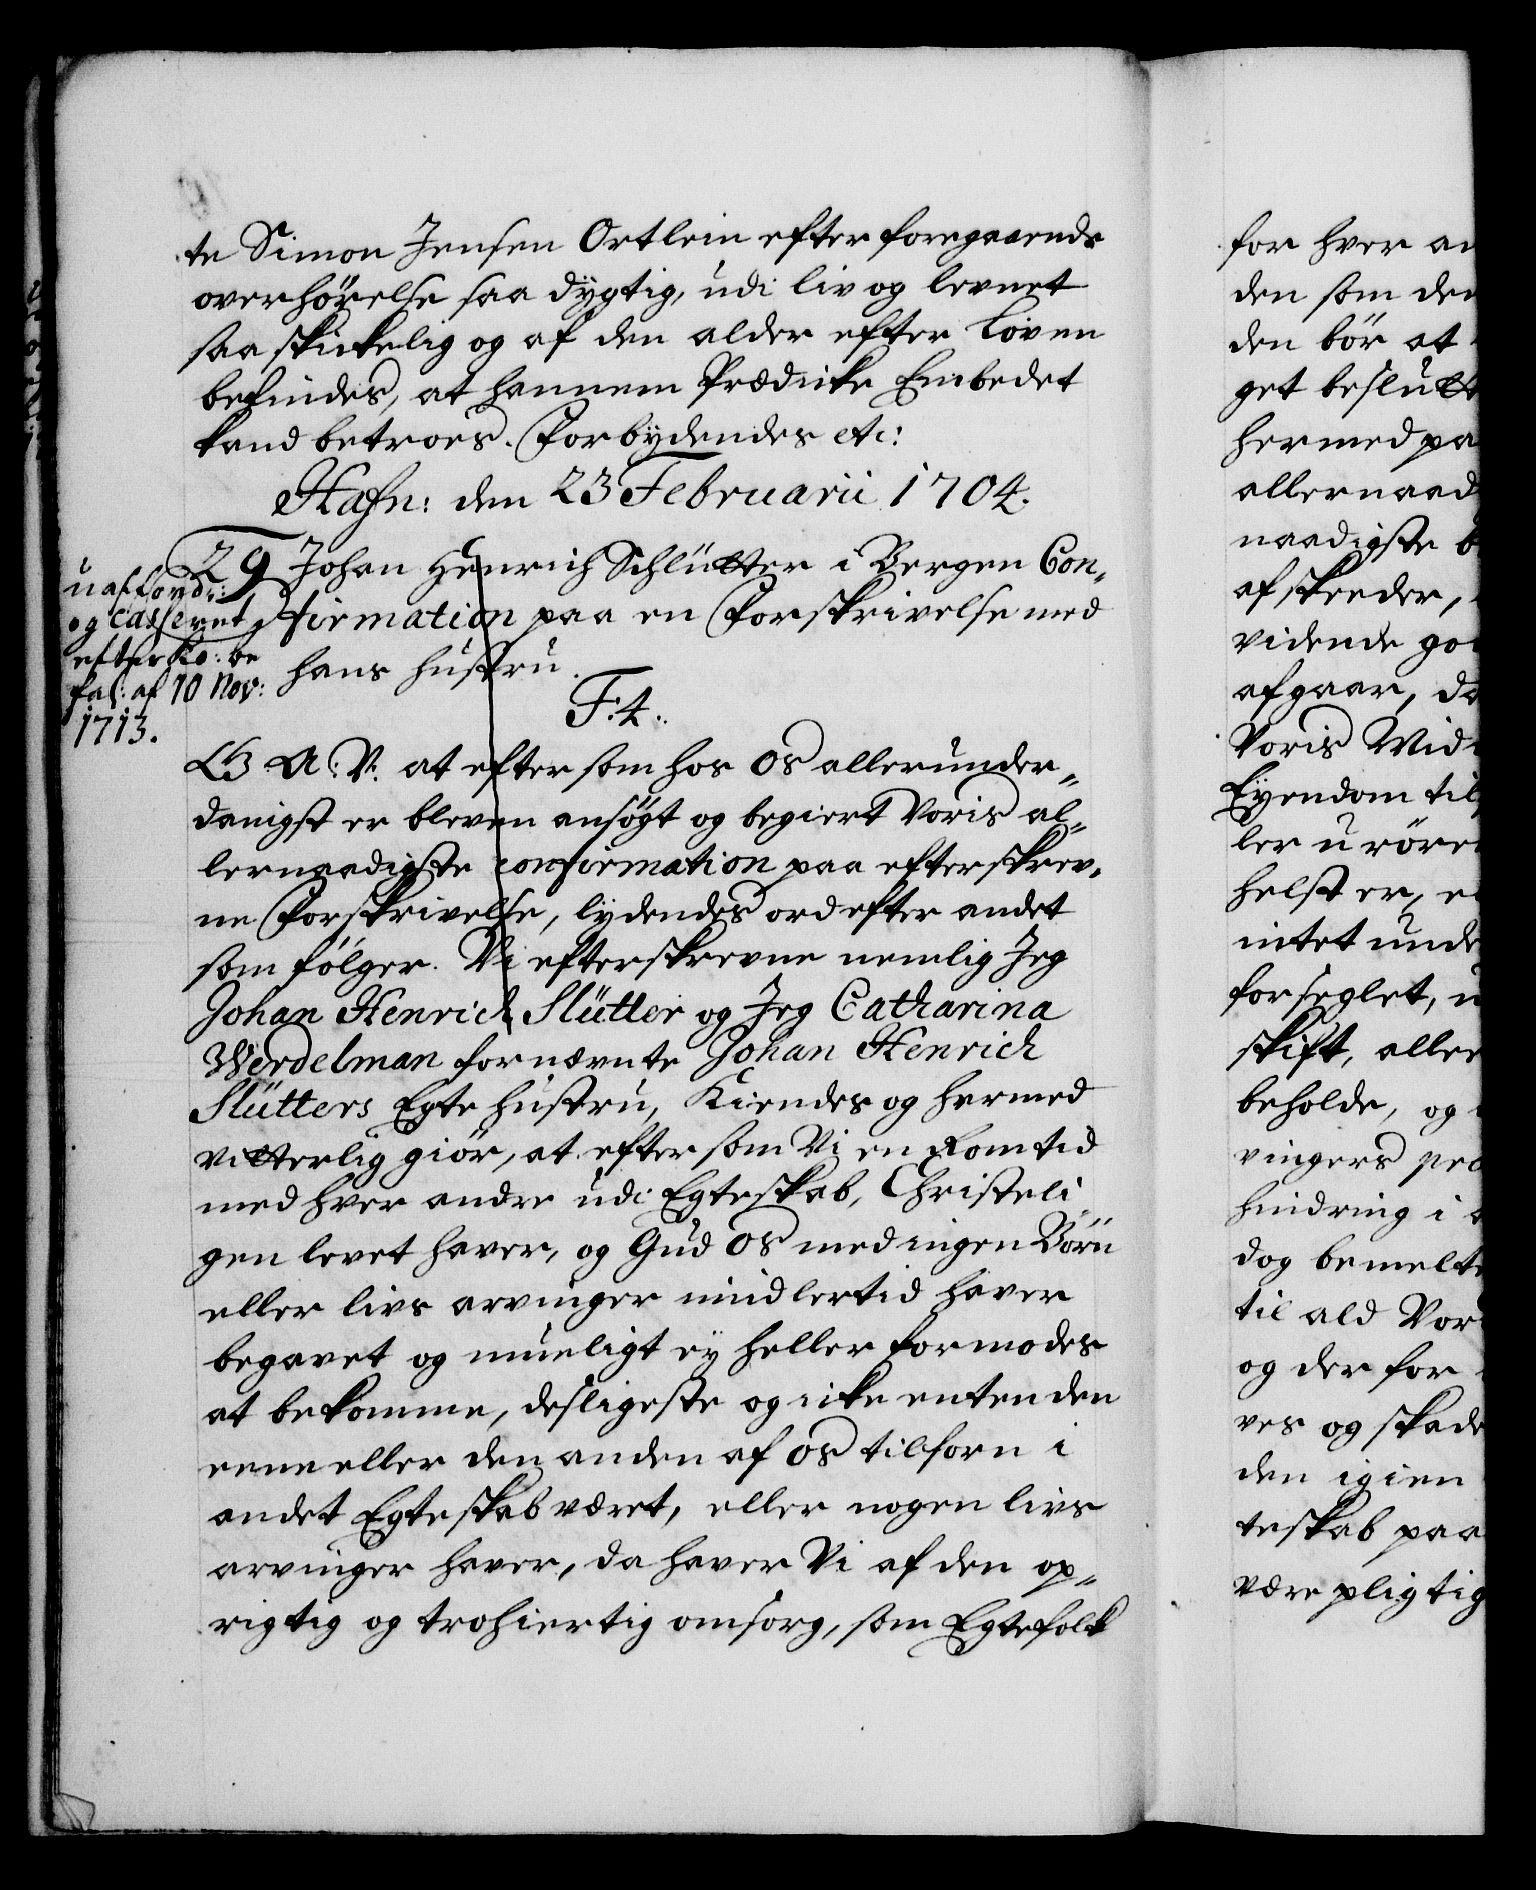 te Simon Jensen Ortlein efter foregaaende
overhörelse saa dygtig, udi liv og levnet
saa skickelig og af den alder efter Loven
befindes, at hannem Prædicke Embedet
kand betroes. Forbydendes etc:
Hafn: den 23 Februarii 1704.
29 Johan Henrich Schlütter i Bergen Con„
firmation paa en Forskrivelse med
hans hustru.
uaffordr:
og Casseret
efter Ko: be
fal: af 10 Nov:
1713.
F: 4.
G. A: V. at eftersom hos Os allerunder„
danigst er bleven ansögt og begiert Voris al„
lernaadigste confirmation paa efterskrev„
ne Forskrivelse, lydendes ord efter andet
som fölger. Vi efterskrevne nemlig Jeg
Johan Henrich Slütter og Jeg Catharina
Werdelman fornævnte Johan Henrich
Slütters Egte hustru, Kiendes og hermed
vitterlig giör, at eftersom Vi en Romtid
med hver andre udi Egteskab, Christeli
gen levet haver, og Gud Os med ingen Börn
eller livs arvinger midlertid haver
begavet og mueligt ey heller formodes
at bekomme, desligeste og icke enten den
eene eller den anden af Os tilforn i
andet Egteskab været, eller nogen livs
arvinger haver, da haver Vi af den op„
rigtig og trohiertig omsorg, som Egtefolck
for hver an
den som den
den bör at
get beslutt
hermed pa
allernaad
naadigste b
afskeeder,
vidende go
afgaar, da
Voris Mid
Eyendom til
ler u röre
helst er, e
intet unde
forseglet, u
skift, aller
beholde, og
vingers præ
hindring i
dog bemelte
til ald Vor
og der for
ves og skade
den igien
teskab paa
være pligtig